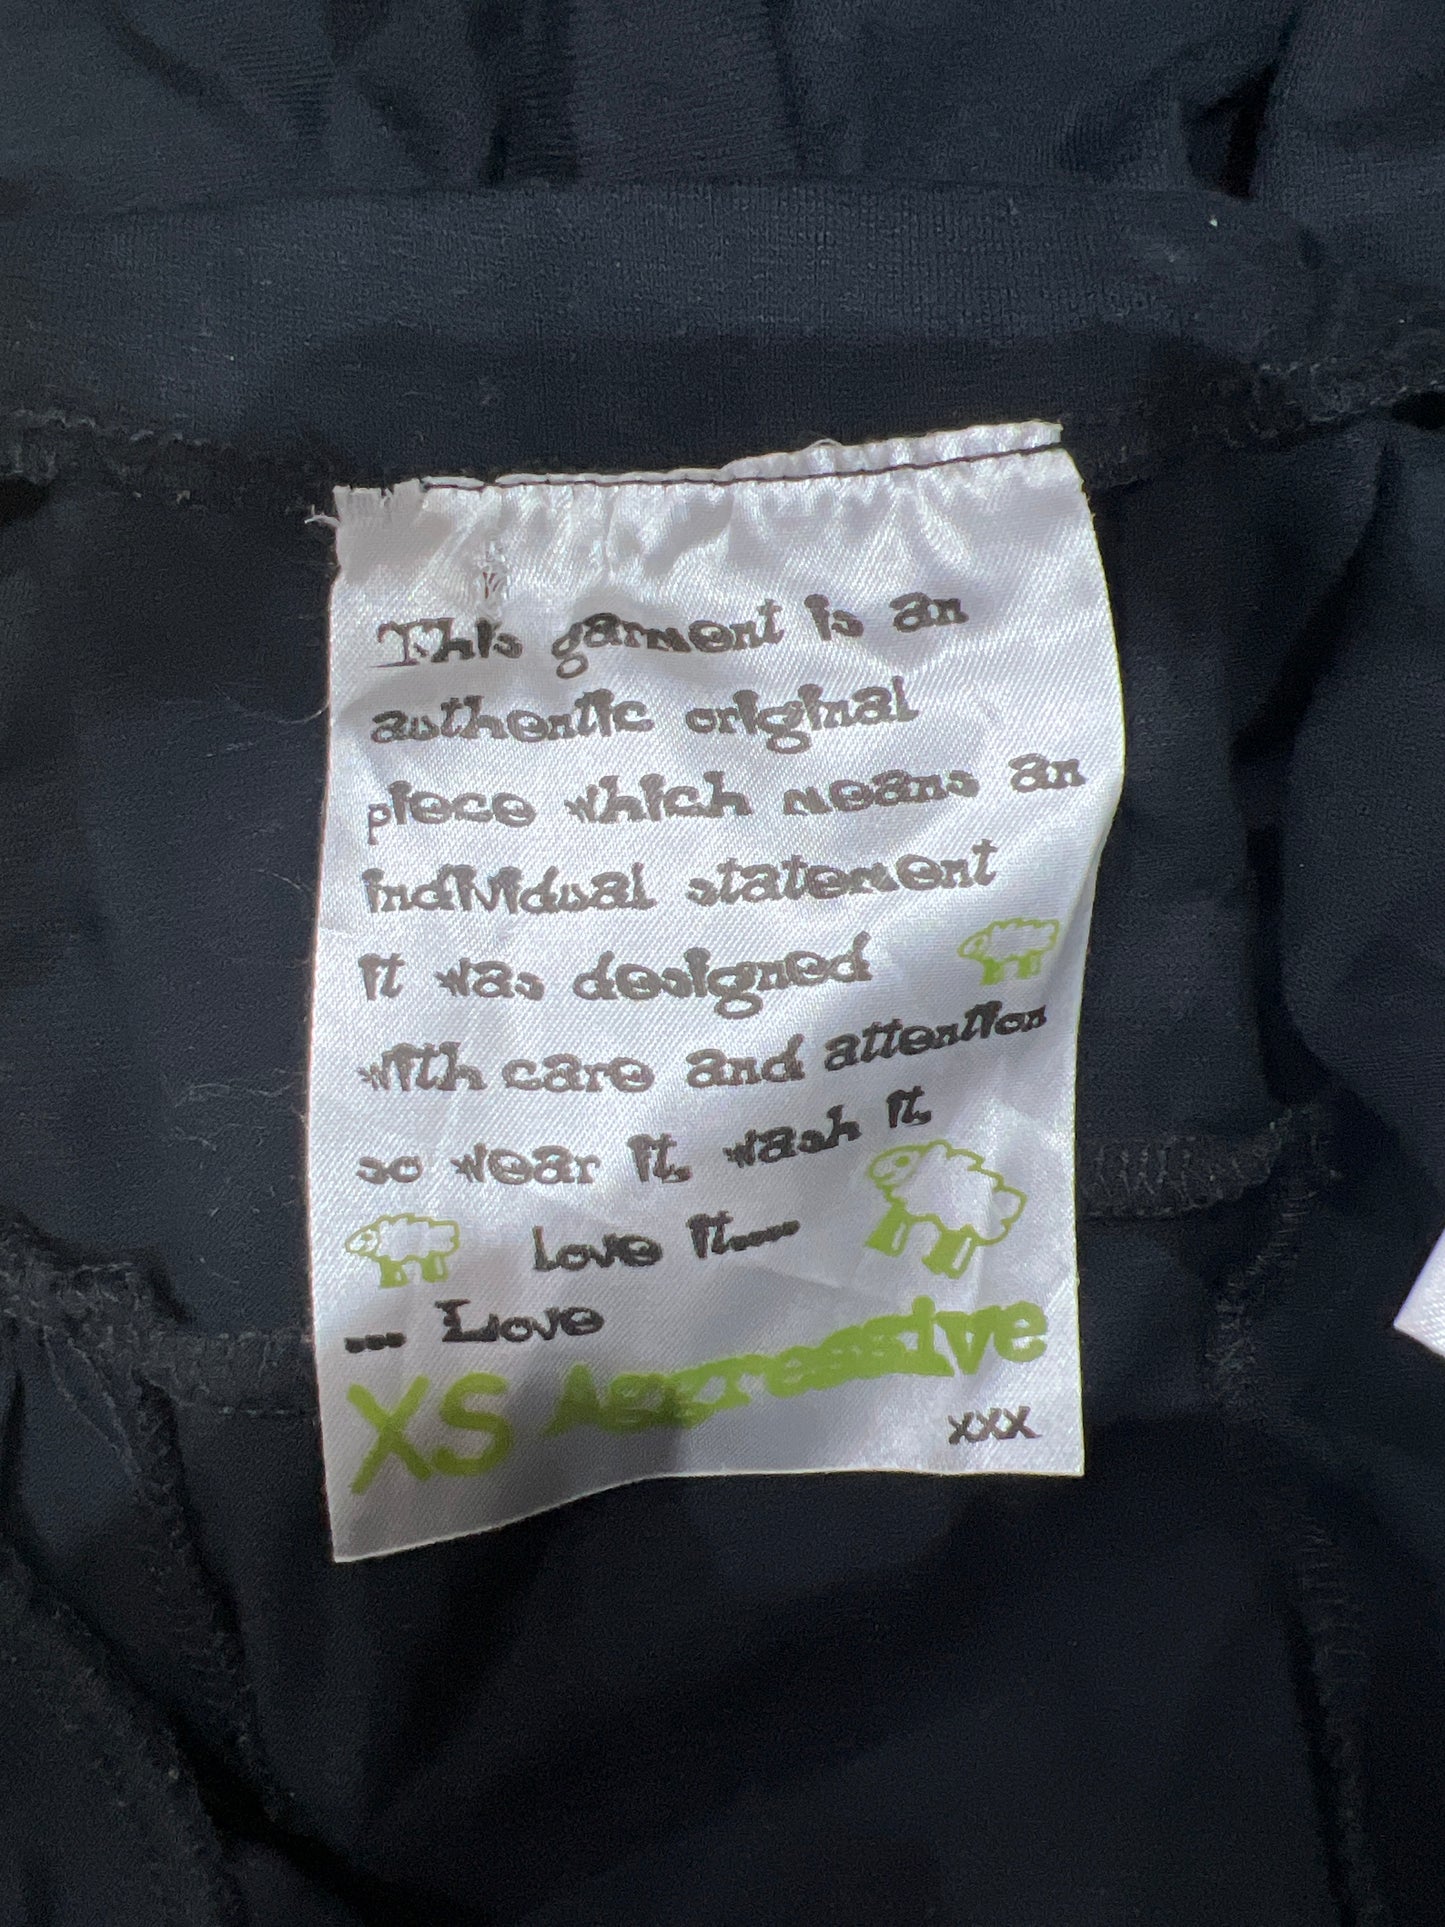 This garment is an
authentic original
piece which means an
individual statement
it was designed
with care and attention
so wear it, wash it,
Love it....
... Love
XS Aggressive
xxx